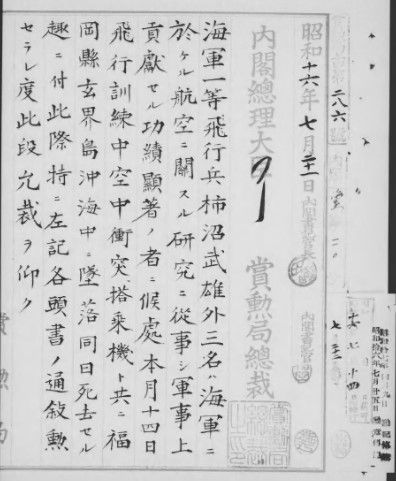 二八六
昭和十六年七月二十一日
内閣書記官長
内閣書記官
内閣總理大
賞勲局總裁
海軍一等飛行兵柿沼武雄外三名ハ海軍ニ
於ケル航空ニ關スル研究ニ從事シ軍事上
貢獻セル功績顯著ノ者ニ候處本月十四日
飛行訓練中空中衝突搭乗機ト共ニ福
岡縣玄界島沖海中ニ墜落同日死去セル
趣ニ付此際特ニ左記各頭書ノ通敍勲
セラレ度此段允裁ヲ仰ク
賞勲局